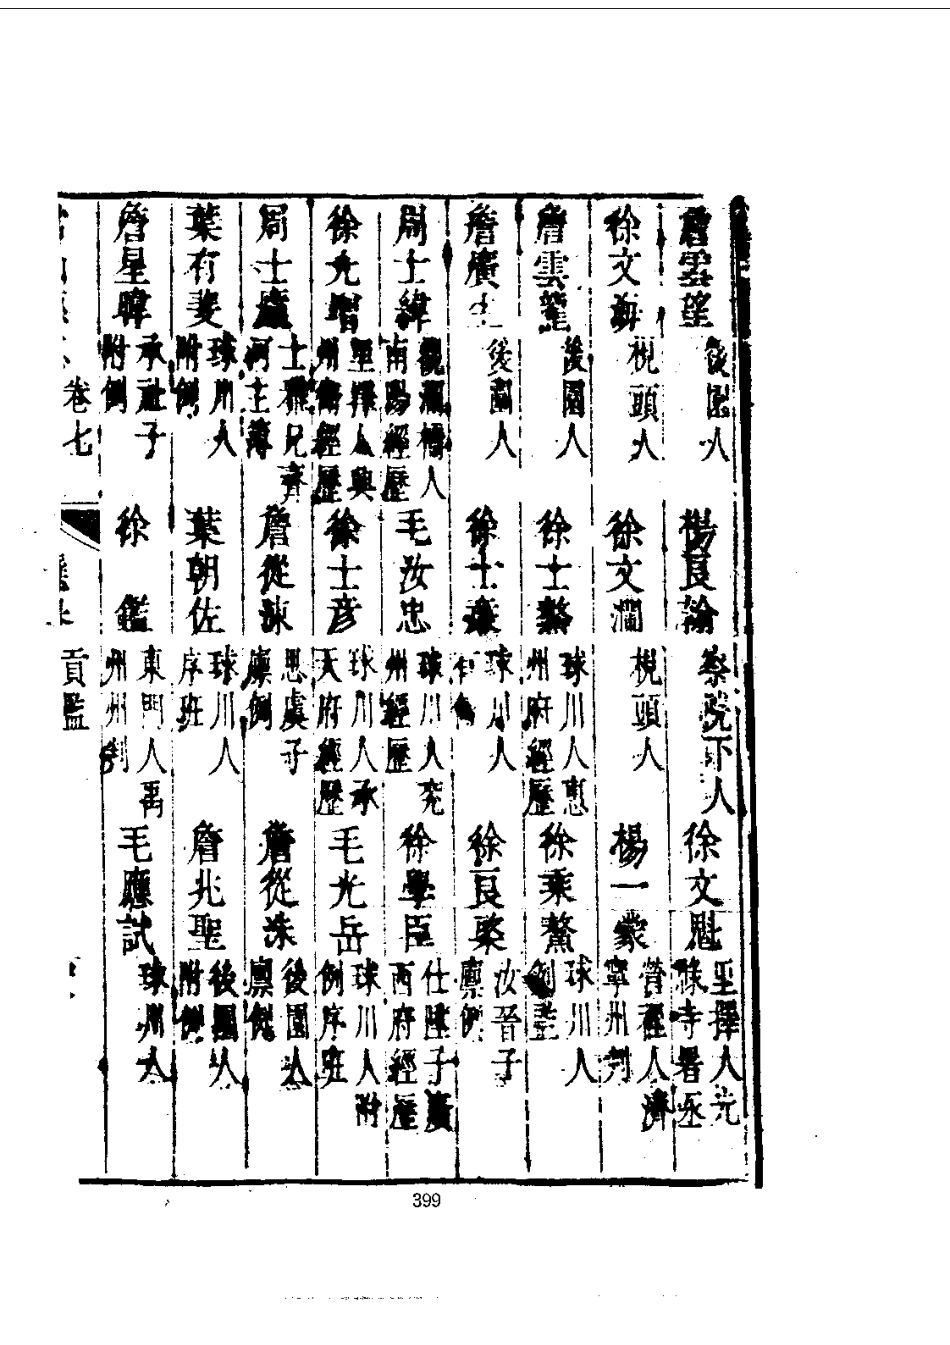 詹雲望 後園人 楊良諭 察院下人 徐文魁 坙擇人光祿寺署丞
徐文海 枧頭人 徐文瀾 枧頭人 楊一蒙 營程人濟寧州判
詹雲龍 後園人 徐士鰲 球川人惠州府經歷 徐乘鰲 球川人例監
詹廣生 後園人 徐士 球川人 徐良 汝晉子廪例
周士緯 人南陽經歷 毛汝忠 球川人兗州經歷 徐學臣 仕隆子廣西府經歷
徐允增 坙擇人興州衛經歷 徐士彦 球川人承天府經歷 毛光岳 球川人附例序班
周士鷹 士雅兄齊河主簿 詹從諫 思虞子廪例 詹從洙 後園人廪例
葉有斐 球川人附例 葉朝佐 球川人序班 詹兆聖 後園人附例
詹星暐 承祉子附例 徐鑑 東門人禹州州判 毛應試 球川人
卷七 貢監
399